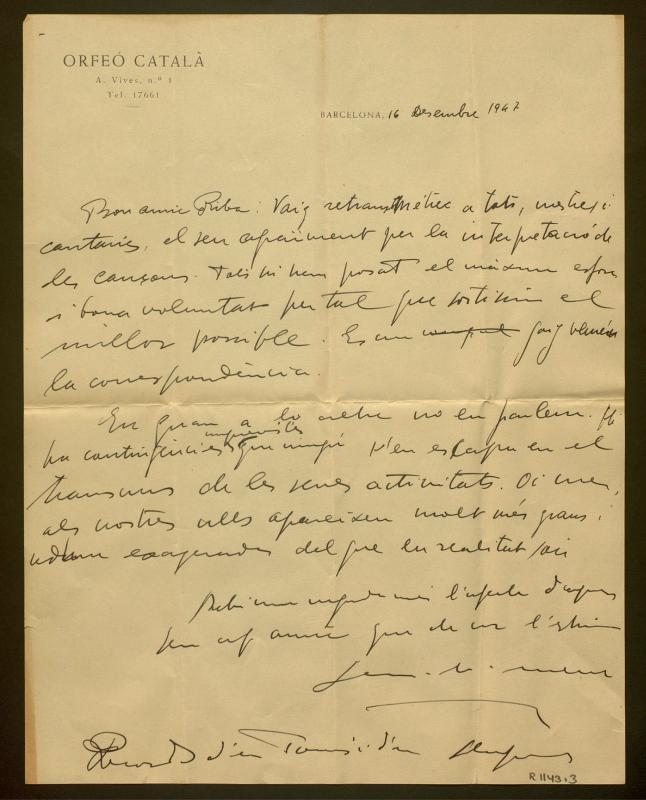 ORFEÓ CATALÀ
A. Vives, n.º 1
Tel. 17661
BARCELONA, 16 Desembre 1947
Bon amic Riba: Vaig retransmètre a tots, mestres i
cantaires, el seu agraiment per la interpretació de
les cançons. Tots hi hem posat el màxim esforç
i bona voluntat per tal que sortissin el
millor possible. Es un goig veure
la correspondència.
En quan a lo altre no en parlem. Hi
ha contingències imprevistes que ningú s'en escapa en el
transcurs de les seves activitats. Oi mes,
als nostres ulls apareixen molt més grans i
exagerades del que en realitat són
l'afecte d'aquest
seu amic que de cor l'estima
Records d'en Tomàs i d'en
R 1143.3